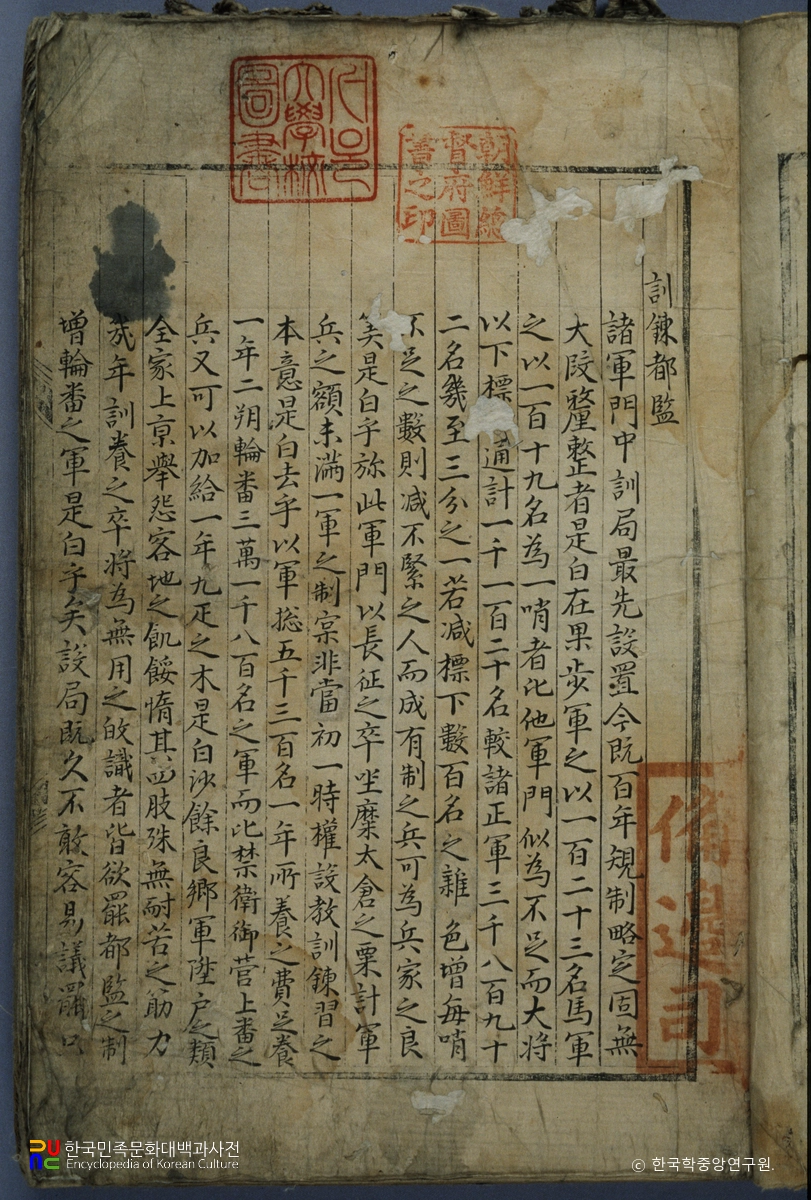 訓鍊都監
諸軍門中訓局最先設置今旣百年規制略定固無
大段釐整者是白在果步軍之以一百二十三名馬軍
之以一百十九名為一哨者比他軍門似為不足而大將
以下標 通計一千一百二十名較諸正軍三千八百九十
二名幾至三分之一若减標下數百名之雜色增每哨
不足之數則减不緊之人而成有制之兵可為兵家之良
筭是白乎旀此軍門以長征之卒坐糜太倉之粟計軍
兵之額未滿一軍之制宲非當初一時權設教訓鍊習之
本意是白去乎以軍捴五千三百名一年所養之費足養
一年二朔輪番三萬一千八百名之軍而比禁衛御營上番之
兵又可以加給一年九疋之木是白沙餘良鄉軍陞戶之類
全家上京舉怨客地之飢餒惰其四肢殊無耐苦之筋力
幾年訓養之卒將為無用之的識者皆欲罷都監之制
增輪番之軍是白乎矣設局旣久不敢容易議罷只
備邊司
朝鮮總督府圖書之印
大學校圖書
한국민족문화대백과사전
Encyclopedia of Korean Culture
© 한국학중앙연구원.